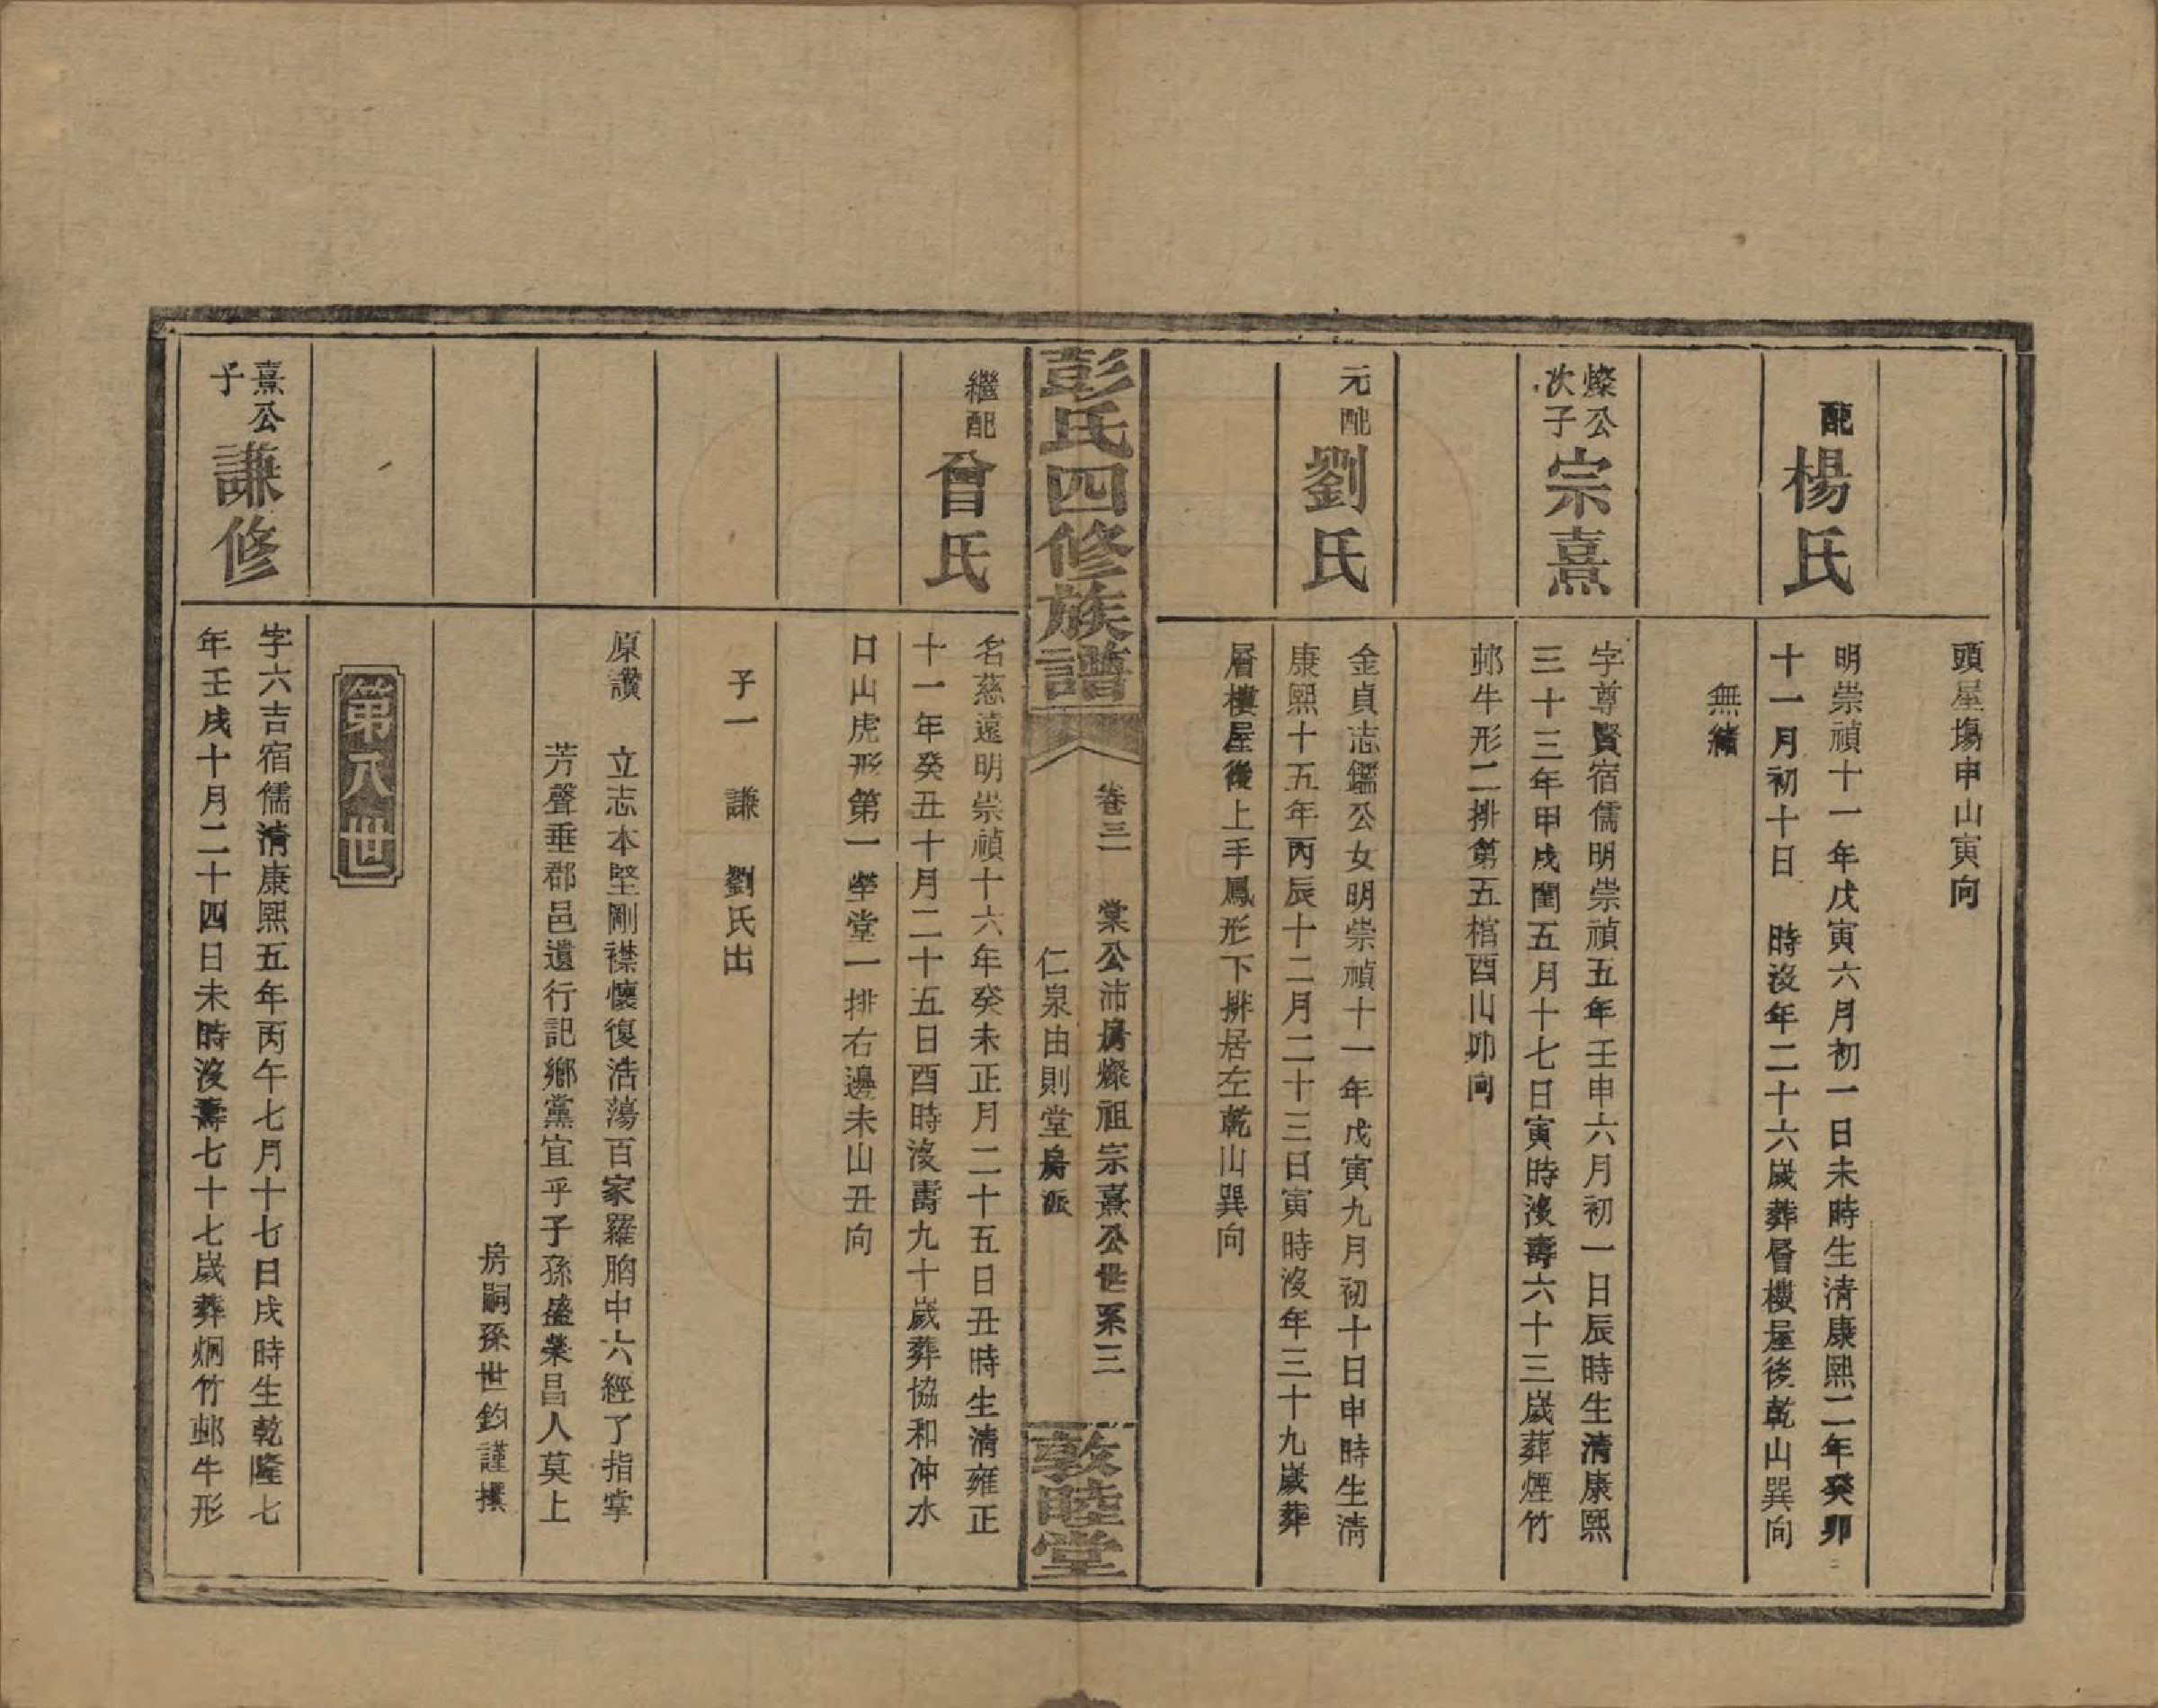 頭屋塲申山寅向
配
楊氏
明崇禎十一年戊寅六月初一日未時生清康熙二年癸卯
十一月初十日　時沒年二十六歲葬層樓屋後乾山巽向
無緒
燦公
次子
宗熹
字尊賢宿儒明崇禎五年壬申六月初一日辰時生清康熙
三十三年甲戌閏五月十七日寅時沒壽六十三歲葬煙竹
邮牛形二排第五棺酉山卯向
元配
劉氏
金貞志鑑公女明崇禎十一年戊寅九月初十日申時生清
康熙十五年丙辰十二月二十三日寅時沒年三十九歲葬
層樓屋後上手鳳形下排居左乾山巽向
彭氏四修族譜
卷三　棠公沛房燦祖宗熹公世系三
仁泉由則堂房派
敦睦堂
繼配
曾氏
名慈遠明崇禎十六年癸未正月二十五日丑時生清雍正
十一年癸丑十月二十五日酉時沒壽九十歲葬協和冲水
口山虎形第一塋堂一排右邊未山丑向
子一　謙　劉氏出
原讚　立志本堅剛襟懷復浩蕩百家羅胸中六經了指掌
芳聲垂郡邑遺行記鄉黨宜乎子孫盛榮昌人莫上
房嗣孫世鈞謹撰
第八世
熹公
子
謙修
字六吉宿儒清康熙五年丙午七月十七日戌時生乾隆七
年壬戌十月二十四日未時沒壽七十七歲葬烟竹邮牛形